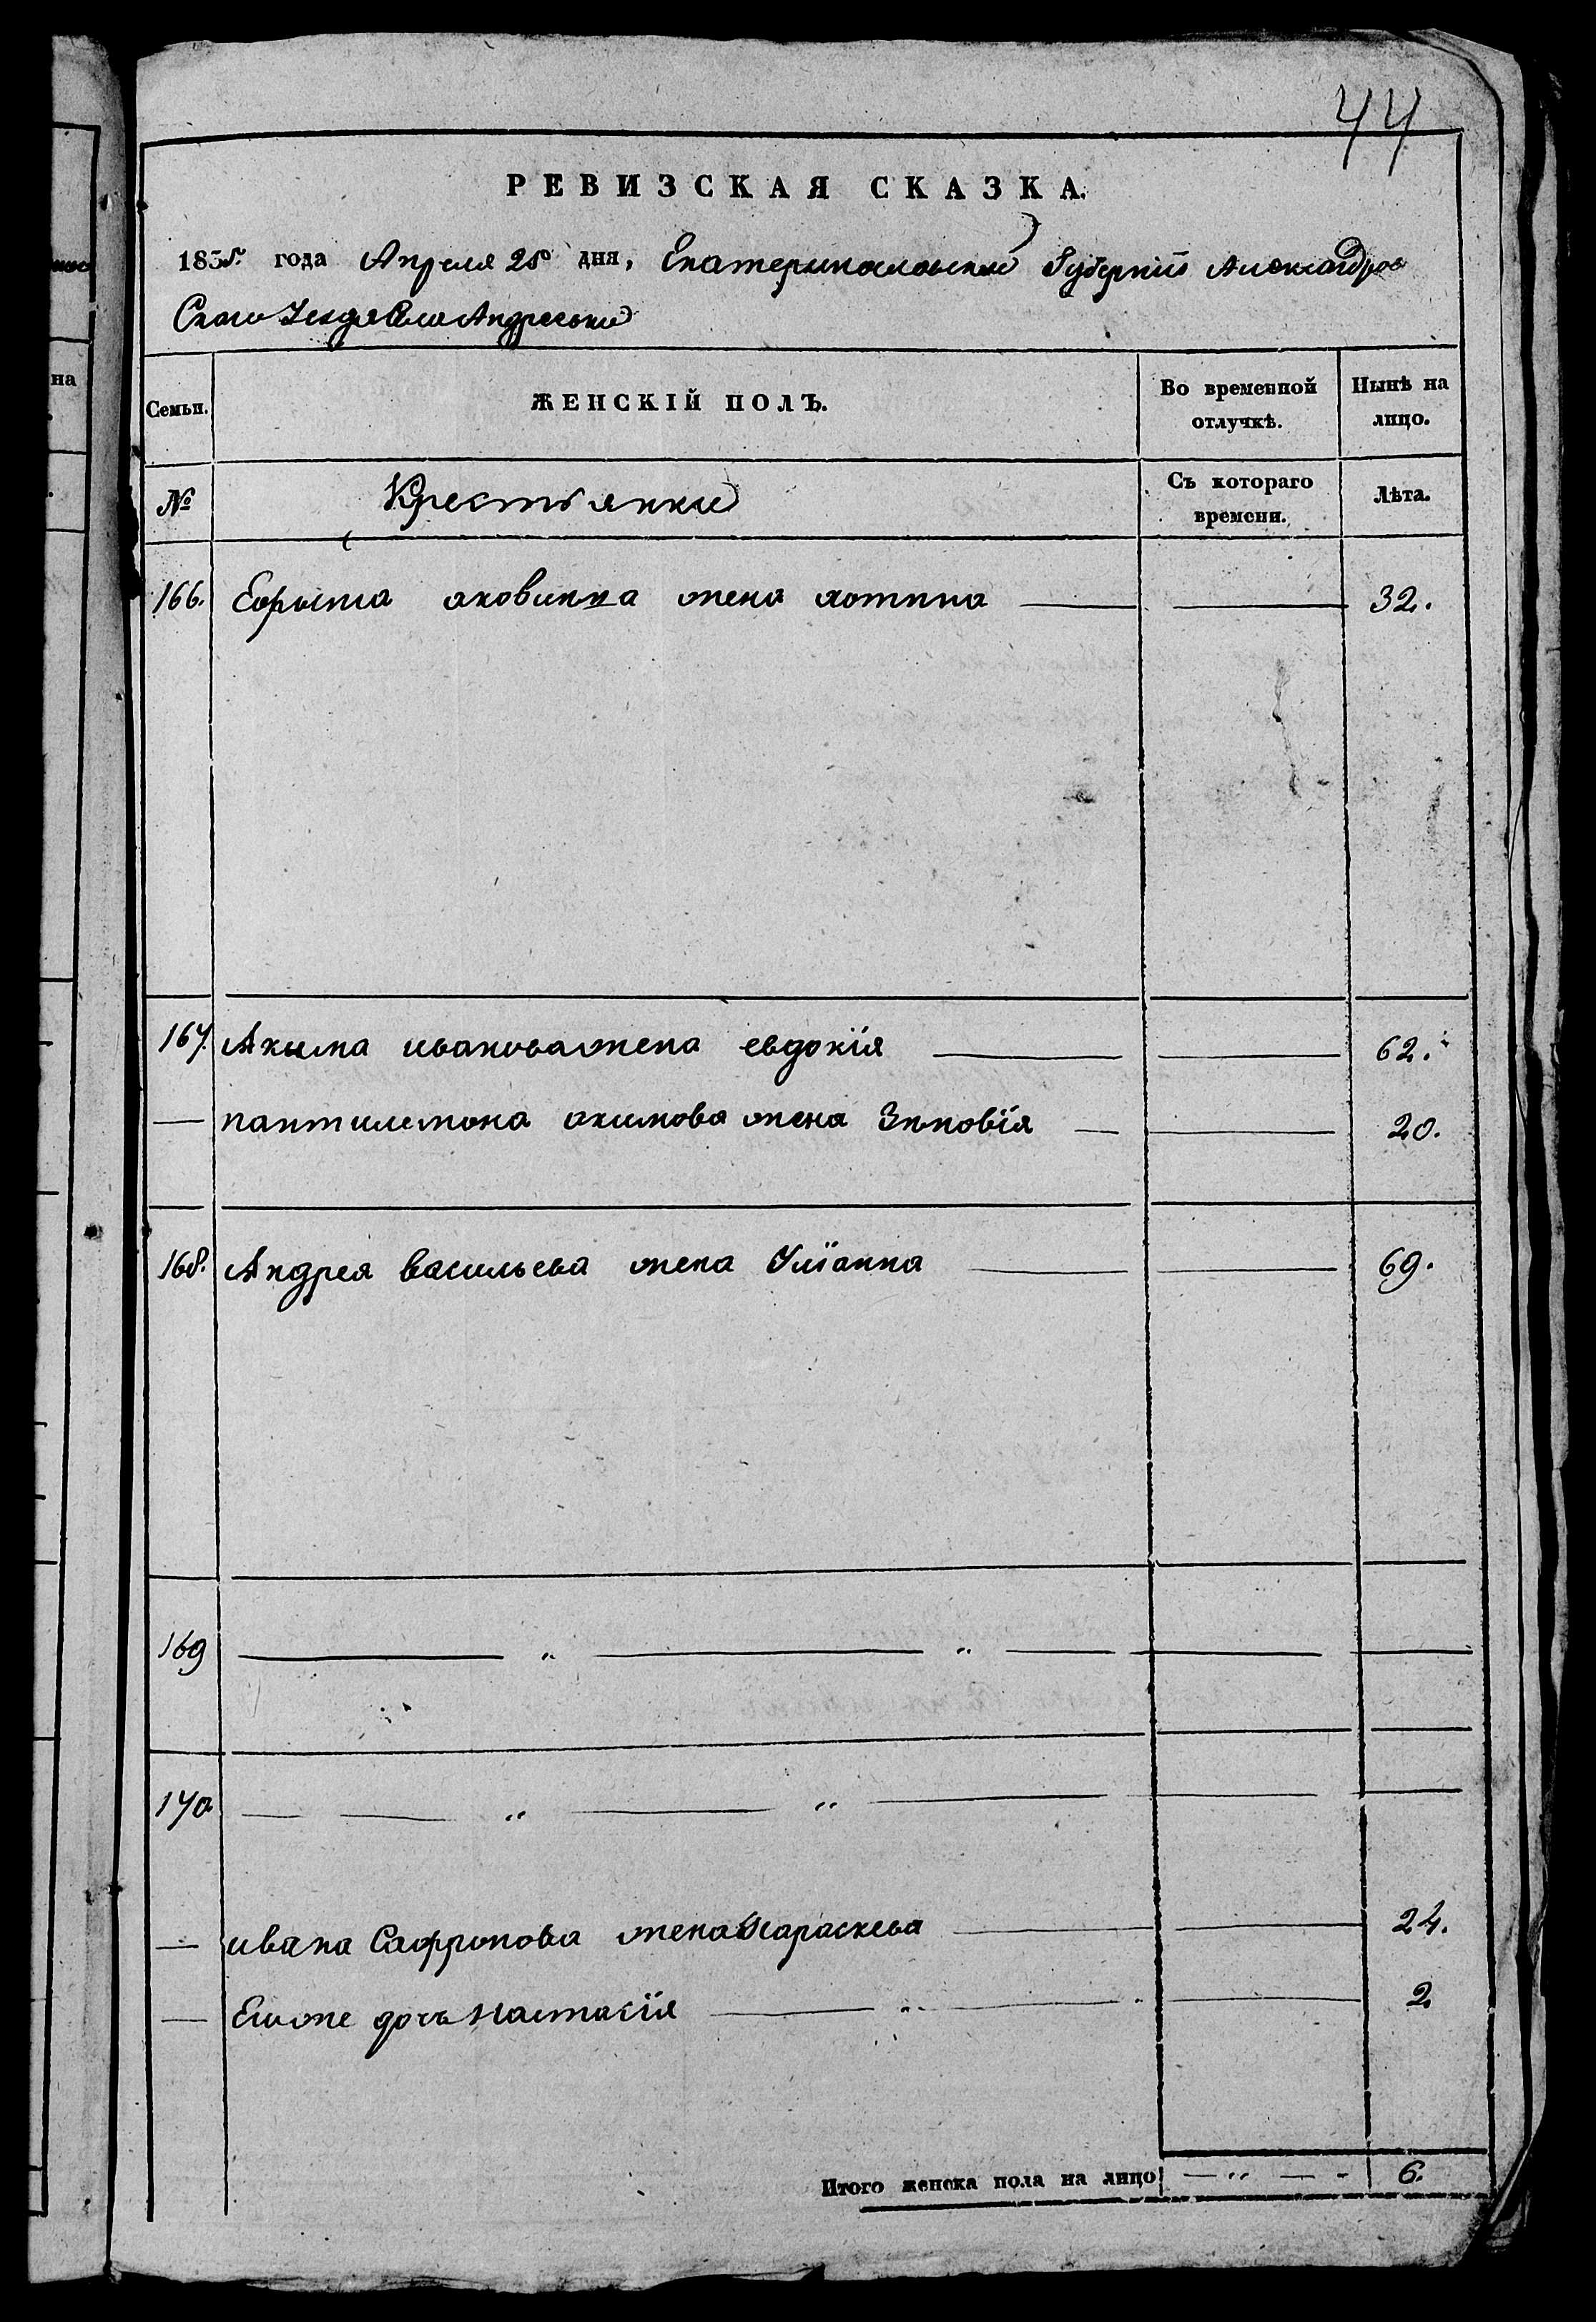 44
РЕВИЗСКАЯ СКАЗКА.
1835. года Апреля 25º дня, Екатеринославской Губернии Александров
Скаго Уезда Села Андреевки
на
Семьи.
ЖЕНСКІЙ ПОЛЪ.
Во временной отлучкѣ.
Нынѣ на лицо.
№
Крестьянки
Съ котораго времени.
Лѣта.
166. жена 32.
167. Акима иванова жена евдокія 62.
— пантилимона акимова жена Зиновія — 20.
168. Андрея васильева жена Уліанна 69.
169 — " — " —
170 — — " — " —
— ивана Сафронова жена Параскева 24.
— Егоже дочь Настасія 2
Итого женска пола на лицо — " — - 6.